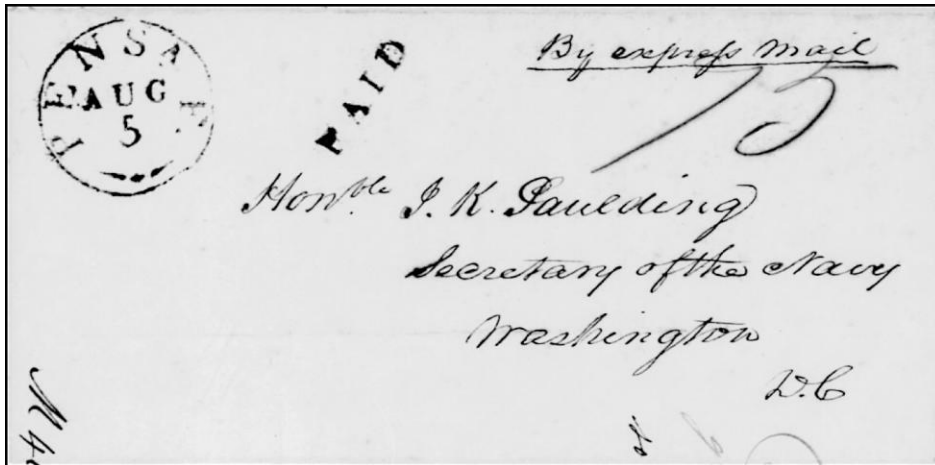 PENSA F.
AUG
5
PAID
By express Mail
75
Honble J. K. Paulding
Secretary of the Navy
Washington
D.C